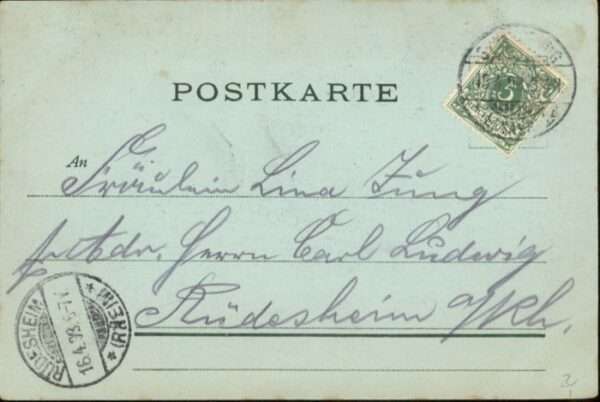 POSTKARTE
An
Fräulein Lina Jung
p. Adr. Herrn Carl Ludwig
Rüdesheim a/Rh.
RÜDESHEIM
(RHEIN)
16.4.98. 6-7 V
5